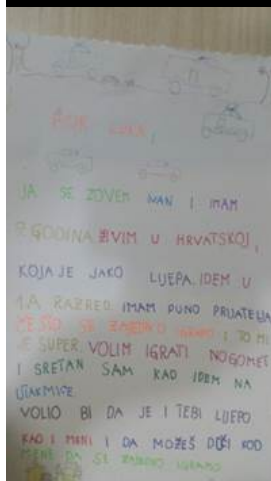 JA SE ZOVEM IVAN I IMAM
GODINA ŽIVIM U HRVATSKOJ,
KOJA JE JAKO LIJEPA. IDEM U
1.A RAZRED. IMAM PUNO PRIJATELJA
SE ZAJEDNO IGRAMO I TO MI
JE SUPER. VOLIM IGRATI NOGOMET
I SRETAN SAM KAD IDEM NA
UTAKMICE.
VOLIO BI DA JE I TEBI LIJEPO
KAO I MENI I DA MOŽEŠ DOĆI KOD
MENE DA SE ZAJEDNO IGRAMO